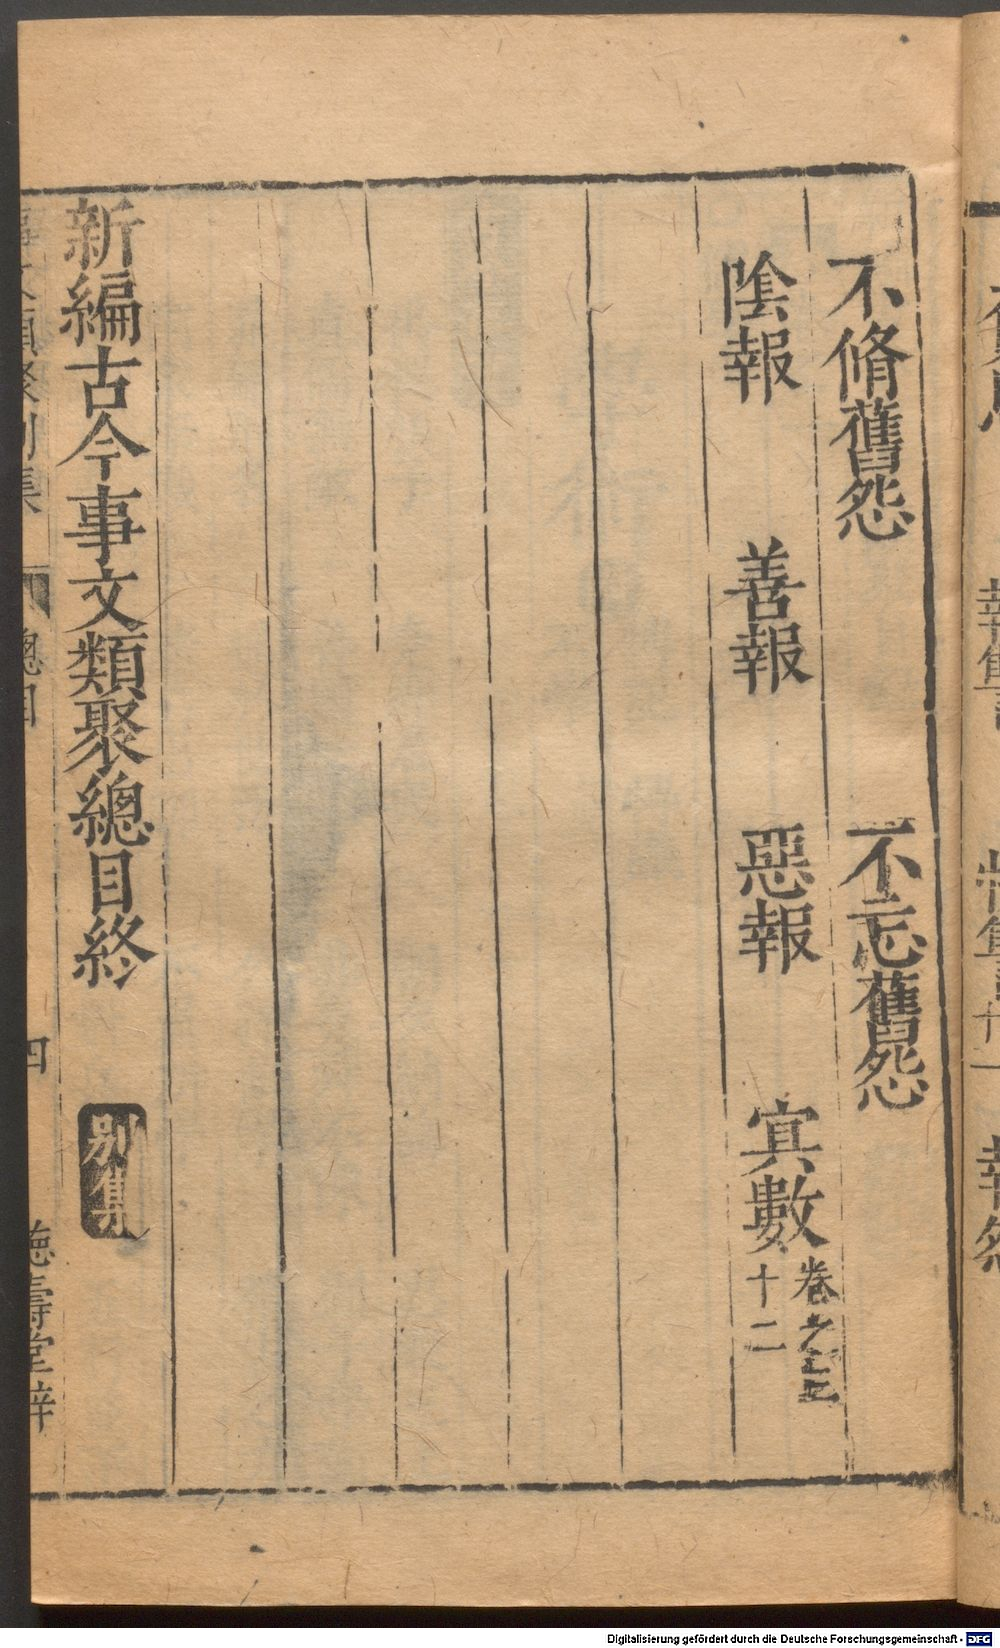 不脩舊怨　不忘舊怨
陰報　善報　惡報　㝠數 卷之三十二
新編古今事文類聚總目終　別集
事文類聚別集　總目　四　德壽堂梓
Digitalisierung gefördert durch die Deutsche Forschungsgemeinschaft - DFG